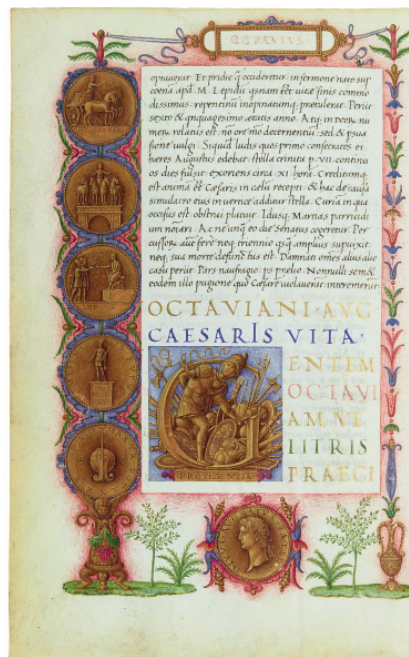 OCTAVIUS
optaverat. Et pridie q̃ occideretur: in sermone nato sup
coena apd. M. Lepidũ qsnam eẽt vitæ finis commo
dissimus: repentinũ inopinatumq; prætulerat. Periit
sexto & qnquagesimo ætatis anno. Atq; in
relatus est: nõ ore mõ decernentiũ: sed & psua
sione vulgi. Siquid ludis quos primo consecratos ei
heres Augustus edebat: stella crinita p. vii. continu
os dies fulsit: exoriens circa. xi. hora. Creditumq;
est animã eẽ Cæsaris in cælũ recepti: & hac de causa
simulacro eius in vertice additur stella. Curiã in qua
occisus est obstrui placuit. Idusq; Martias parricidi
um noiari. Ac ne unq̃ eo die Senatus cogeretur. Per
cussorũ aũt fere neq; triennio qsq̃ amplius supvixit:
neq; sua morte defunctus est. Damnati om̃es alius alio
casu periit. Pars naufragio: ps prælio. Nonnulli semet
eodem illo pugione quo Cæsarẽ violaverãt: interemerũt
OCTAVIANI · AVG
CAESARIS VITA ·
G ENTEM
OCTAVI
AM VE
LITRIS
PRAECI
PROVIDENTIA